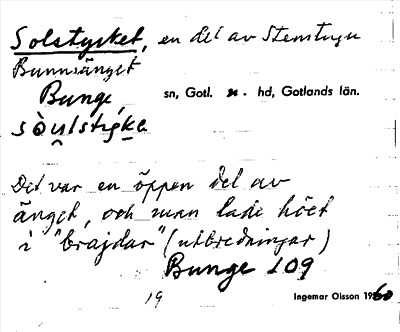 Solstycket, en del av Stenstugu
Bunnsänget
Bunge, sn, Gotl. n. hd, Gotlands län.
Det var en öppen del av
änget, och man lade höet
i "brajdar" (utbredningar)
Bunge 109
19 Ingemar Olsson 1960